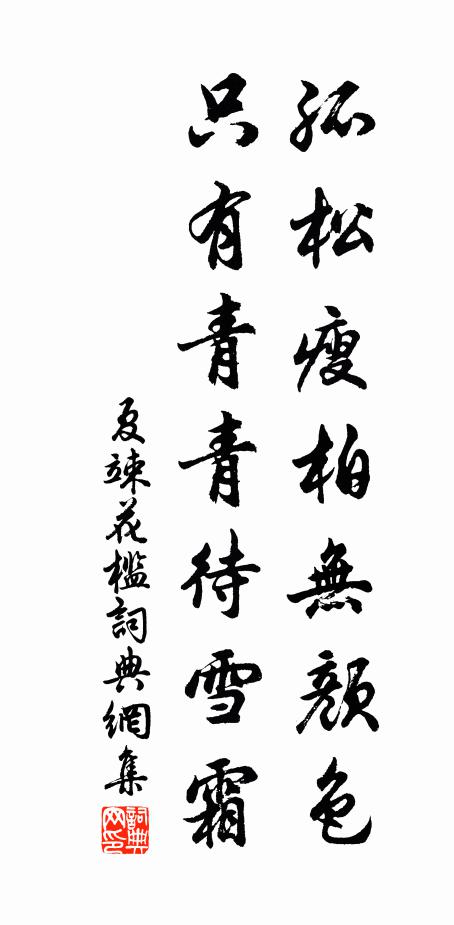 孤松瘦柏無顏色
只有青青待雪霜
夏竦花檻詞典網集
詞典网印